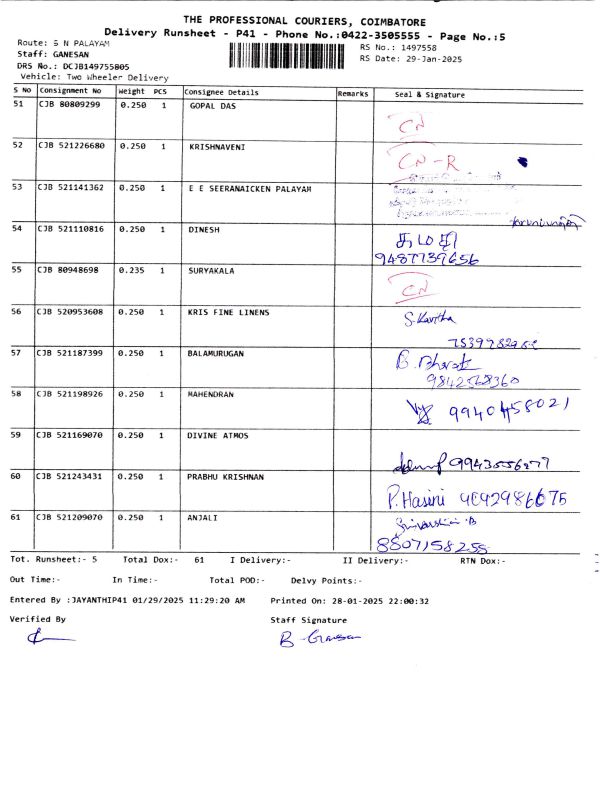 THE PROFESSIONAL COURIERS, COIMBATORE
Delivery Runsheet - P41 - Phone No.:0422-3505555 - Page No.:5
Route: S N PALAYAM
RS No.: 1497558
Staff: GANESAN
RS Date: 29-Jan-2025
DRS No.: DCJB149755805
Vehicle: Two Wheeler Delivery
S No Consignment No Weight PCS Consignee Details Remarks Seal & Signature
51 CJB 80809299 0.250 1 GOPAL DAS
CN
52 CJB 521226680 0.250 1 KRISHNAVENI
CN-R
53 CJB 521141362 0.250 1 E E SEERANAICKEN PALAYAM
54 CJB 521110816 0.250 1 DINESH
9487739656
55 CJB 80948698 0.235 1 SURYAKALA
CN
56 CJB 520953608 0.250 1 KRIS FINE LINENS
S. Kavitha
57 CJB 521187399 0.250 1 BALAMURUGAN
B. Bharati
9842568360
58 CJB 521198926 0.250 1 MAHENDRAN
9940458021
59 CJB 521169070 0.250 1 DIVINE ATMOS
9943556277
60 CJB 521243431 0.250 1 PRABHU KRISHNAN
P. Hasini
61 CJB 521209070 0.250 1 ANJALI
8807158255
Tot. Runsheet:- 5 Total Dox:- 61 I Delivery:- II Delivery:- RTN Dox:-
Out Time:- In Time:- Total POD:- Delvy Points:-
Entered By :JAYANTHIP41 01/29/2025 11:29:20 AM Printed On: 28-01-2025 22:00:32
Verified By Staff Signature
B Ganesan